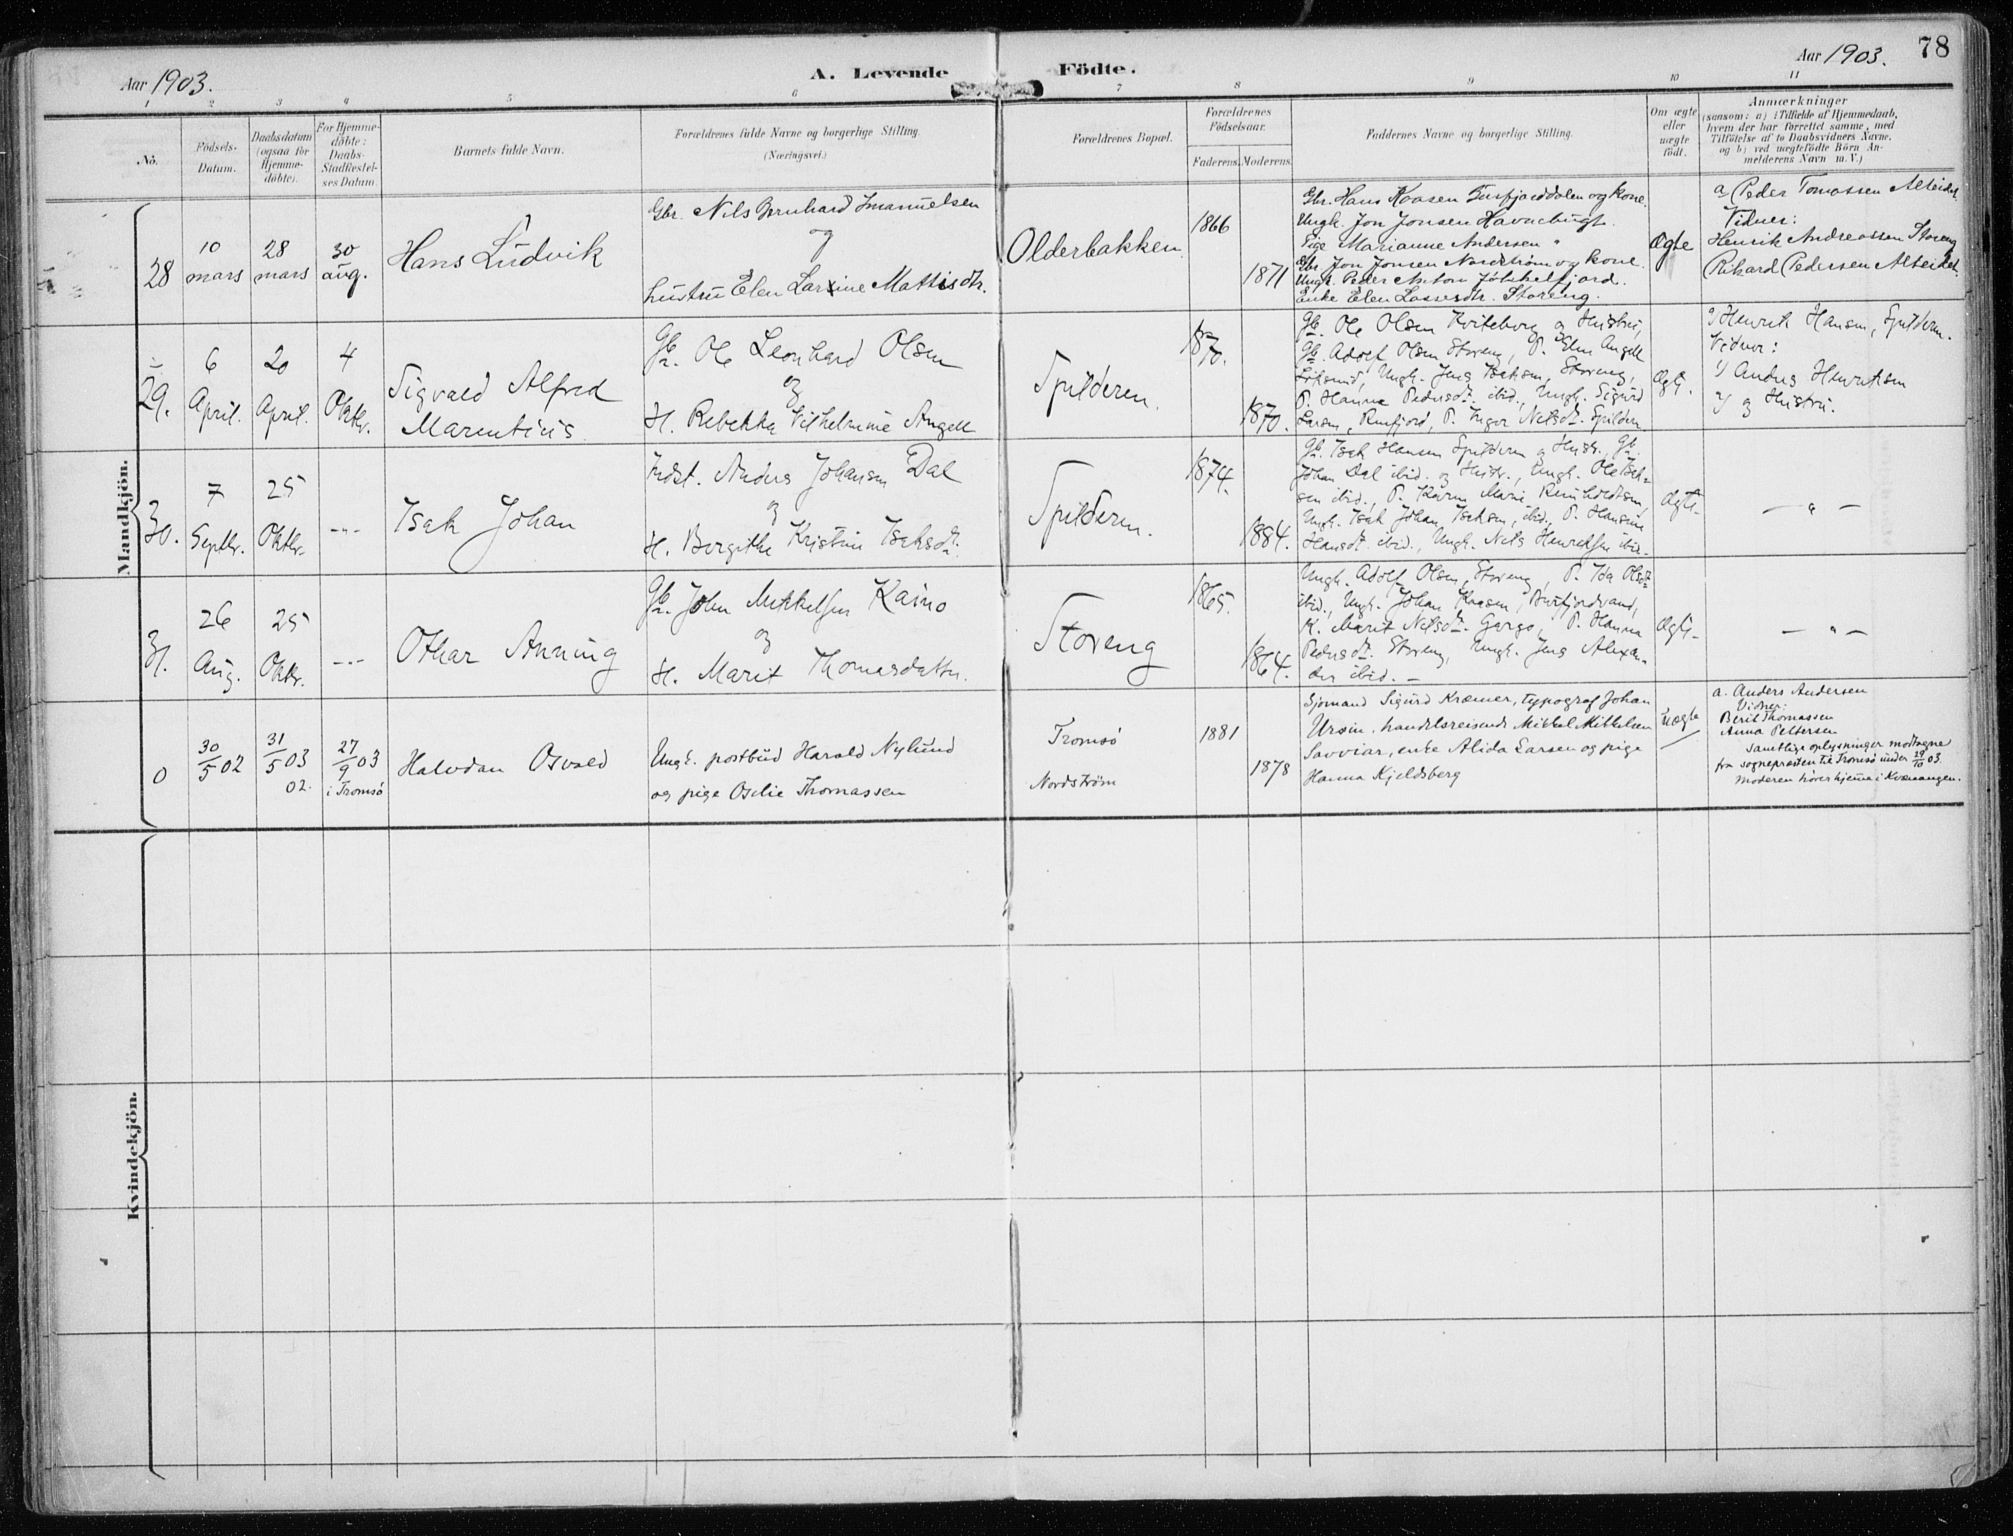 78
Aar 1903.
A. Levende Födte.
Aar 1903.
1 2 3 4 5 6 7 8 9 10 11
No.
Födsels-
Datum.
Daabsdatum
(ogsaa for
Hjemme-
döbte).
For Hjemme-
döbte:
Daabs-
Stadfæstel-
ses Datum.
Barnets fulde Navn.
Forældrenes fulde Navne og borgerlige Stilling.
(Næringsvei.)
Forældrenes Bopæl.
Forældrenes
Födselsaar.
Faderens. Moderens.
Faddernes Navne og borgerlige Stilling.
Om ægte
eller
uægte
födt.
Anmærkninger
(saasom: a) i Tilfælde af Hjemmedaab,
hvem der har forrettet samme, med
Tilföielse af to Daabsvidners Navne,
og b) ved uægtefödte Börn An-
melderens Navn m. V.)
Mandkjön.
28
10
mars
28
mars
30
aug.
Hans Ludvik
Gbr. Nils Bernhard Imanuelsen
og
hustru Elen Larsine Mattisdtr.
Olderbakken
1866
1871
Gbr. Hans Kaasen Burfjorddalen og kone.
Ungk. Jon Jonsen Havnebugt.
Pige Marianne Andersen "
Gbr. Jon Jonsen Nordström og kone.
Ungk. Peder Anton Jökkelfjord.
Enke Elen Lassesdtr. Storeng.
Ægte
a. Peder Tomassen Alteidet.
Vidner:
Henrik Andreassen Storeng
Rikard Pedersen Alteidet.
29.
6
April.
20
April.
4
Oktbr.
Sigvald Alfred
Marentius
Gb. Ole Leonhard Olsen
og
H. Rebekka Vilhelmine Angell
Spilderen.
1870.
1870.
Gb. Ole Olsen Kviteberg og Hustru,
Gb. Adolf Olsen Storeng, P. Elen Angell
Ungk. Jens Isaksen, Storeng,
P. Hanna Pedersdt. ibid., Ungk. Sigurd
Larsen, P. Inger Nilsdt. Spilderen
Ægte.
Henrik Hansen, Spilderen.
Vidner:
1/ Anders Henriksen
2/ og Hustru.
30.
7
Septbr.
25
Oktbr.
---
Isak Johan
Indst. Anders Johansen Dal
og
H. Bergithe Kristine Isaksdt.
Spilderen.
1874.
1884.
Gb. Isak Hansen Spilderen og Hustr., Gb.
Johan Dal ibid. og Hustr., Ungk. Ole Isak-
sen ibid., P. Karen Marie Reinholdtsen,
Ungk. Isak Johan Isaksen, ibid., P. Hansine
Hansdt. ibid., Ungk. Nils Henriksen ibid.
Ægte.
— " —
31.
26
Aug.
25
Oktbr.
---
Othar Anning
Gb. John Mikkelsen Kaino
og
H. Marit Thomasdatter.
Storeng
1865.
1864.
Ungk. Adolf Olsen, Storeng, P. Ida Olsdt.
ibid., Ungk. Johan Kaasen, Burfjordvand,
K. Marit Nilsdt. Gargo, P. Hanna
Pedersdt. Storeng, Ungk. Jens Alexan-
der ibid. —
Ægte.
— " —
0
30/5 02
31/5 03
02.
27/9 03
i Tromsö
Halvdan Osvald
Ungk. postbud Harald Nylund
og pige Oselie Thomassen
Tromsö
Nordström
1881
1878
Sjömand Sigurd Kræmer, typograf Johan
Ursin, handelsreisende Mikkel Mikkelsen
Savviar, enke Alida Larsen og pige
Hanna Kjeldsberg
Uægte
a. Anders Andersen
Vidner:
Berit Thomassen
Anna Pettersen
Samtlige oplysninger modtagne
fra sognepresten til Tromsö under 29/10 03.
Moderen hörer hjemme i Kvænangen.
Kvindekjön.